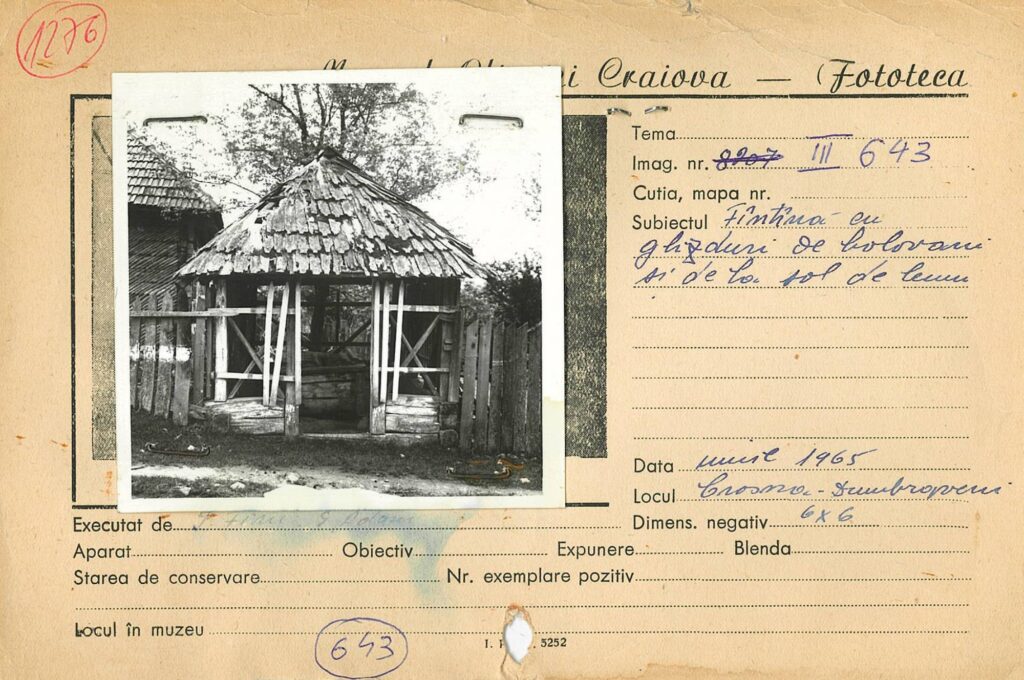 1276
Craiova — (Fototeca
Tema
Imag. nr. 8207 III 643
Cutia, mapa nr.
Subiectul Fîntînă cu
ghizduri de bolovani
si de la sol de lemn
Data iunie 1965
Locul Crosna - Dumbrăveni
Dimens. negativ 6x6
Executat de
Aparat Obiectiv Expunere Blenda
Starea de conservare Nr. exemplare pozitiv
Locul în muzeu
643
5252